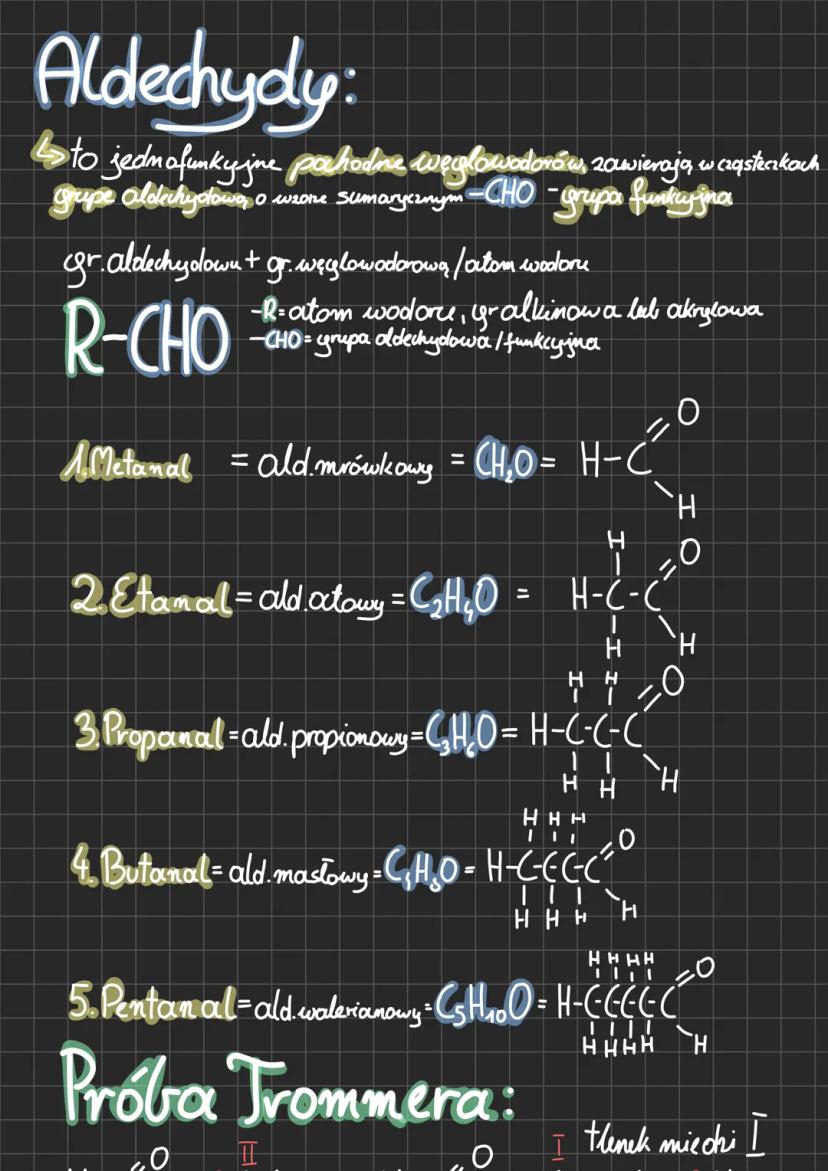 Aldechydy:
↳ to jednofunkcyjne pochodne węglowodorów, zawierają w cząsteczkach
grupę aldechydową, o wzorze sumarycznym -CHO - grupa funkcyjna
gr. aldechydowa + gr. węglowodorowa / atom wodoru
R-CHO
-R = atom wodoru, gr alkinowa lub akrylowa
-CHO = grupa aldechydowa / funkcyjna
1. Metanal = ald. mrówkowy = CH₂O = H-C
O
H
2. Etanal = ald. octowy = C₂H₄O = H-C-C
H
O
H
H
3. Propanal = ald. propionowy = C₃H₆O = H-C-C-C
H H
O
H H
H
4. Butanal = ald. masłowy = C₄H₈O = H-C-C-C-C
H H H
O
H H H
H
5. Pentanal = ald. walerianowy = C₅H₁₀O = H-C-C-C-C-C
H H H H
O
H H H H
H
Próba Trommera:
O
II
O
I
tlenek miedzi I